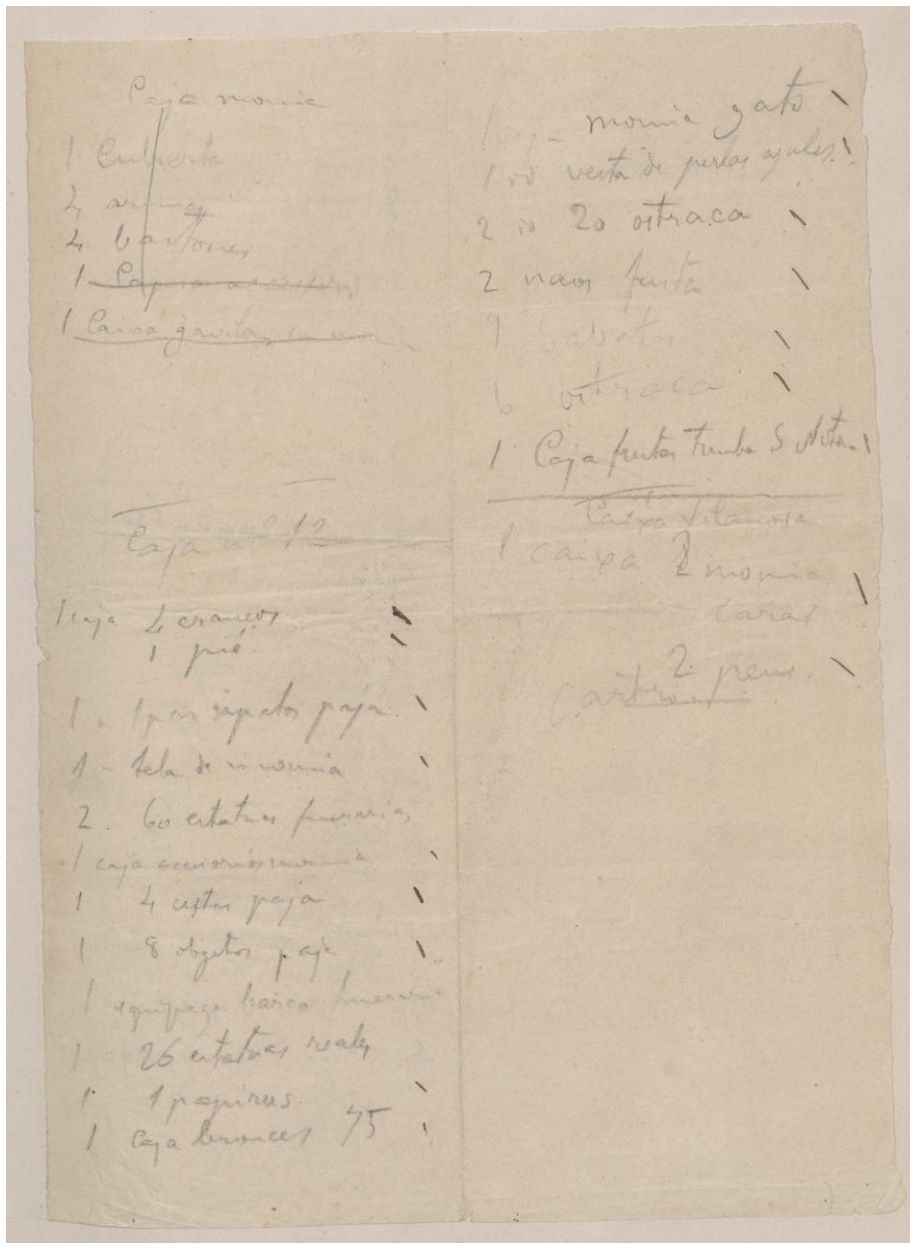 Caja momia
1 Cubierta
4 armas
4 bastones
1 Caja accesorios
1 Caixa gavilan
Caja nº 12
1 caja 4 craneos
1 pié.
1 " 1 par zapatos paja
1 - tela de momia
2 60 estatuas funerarias
1 caja accesorios momia
1 4 cestas paja
1 8 objetos paja
1 equipage barca funeraria
1 26 estatuas reales
1 1 papirus
1 Caja bronces 75
1 caja momia gato
1 id vesta de perlas azules
2 id 20 ostraca
2 naos fusta
9
6 ostraca
1 Caja frutas Tumba S Notem
Caixa Vilanova
1 caixa 2 momias
caras
2 peus
cartro